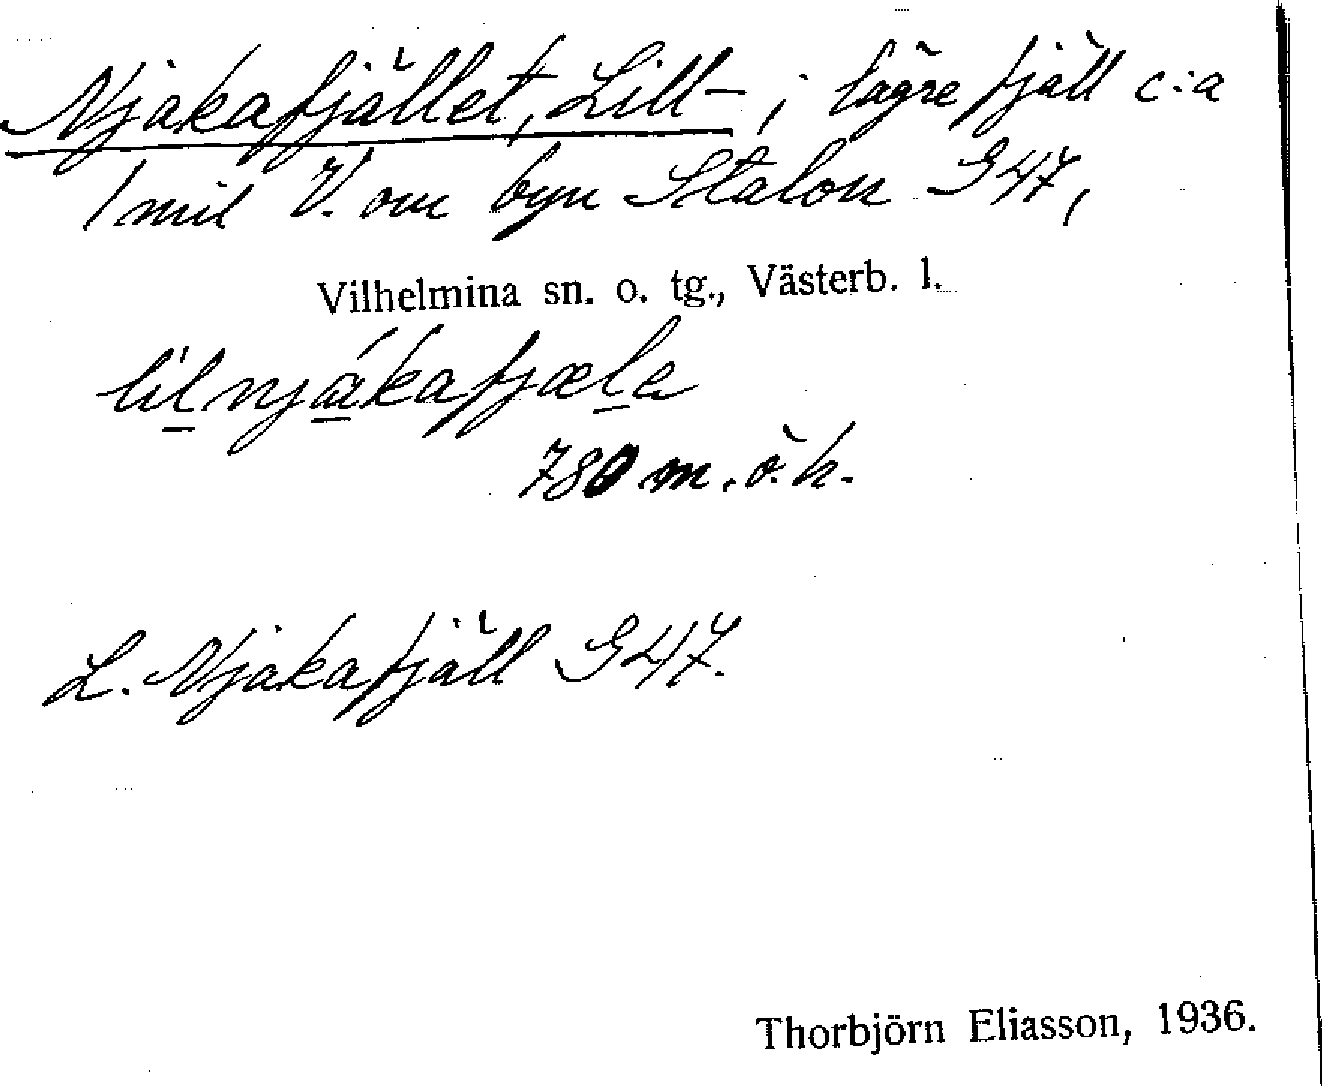 Njakafjället, Lill- ; lägre fjäll c:a
1 mil V. om byn Stalon G47,
Vilhelmina sn. o. tg., Västerb. l.
lilnjákafjæla
780 m.ö.h.
L. Njakafjäll G47.
Thorbjörn Eliasson, 1936.